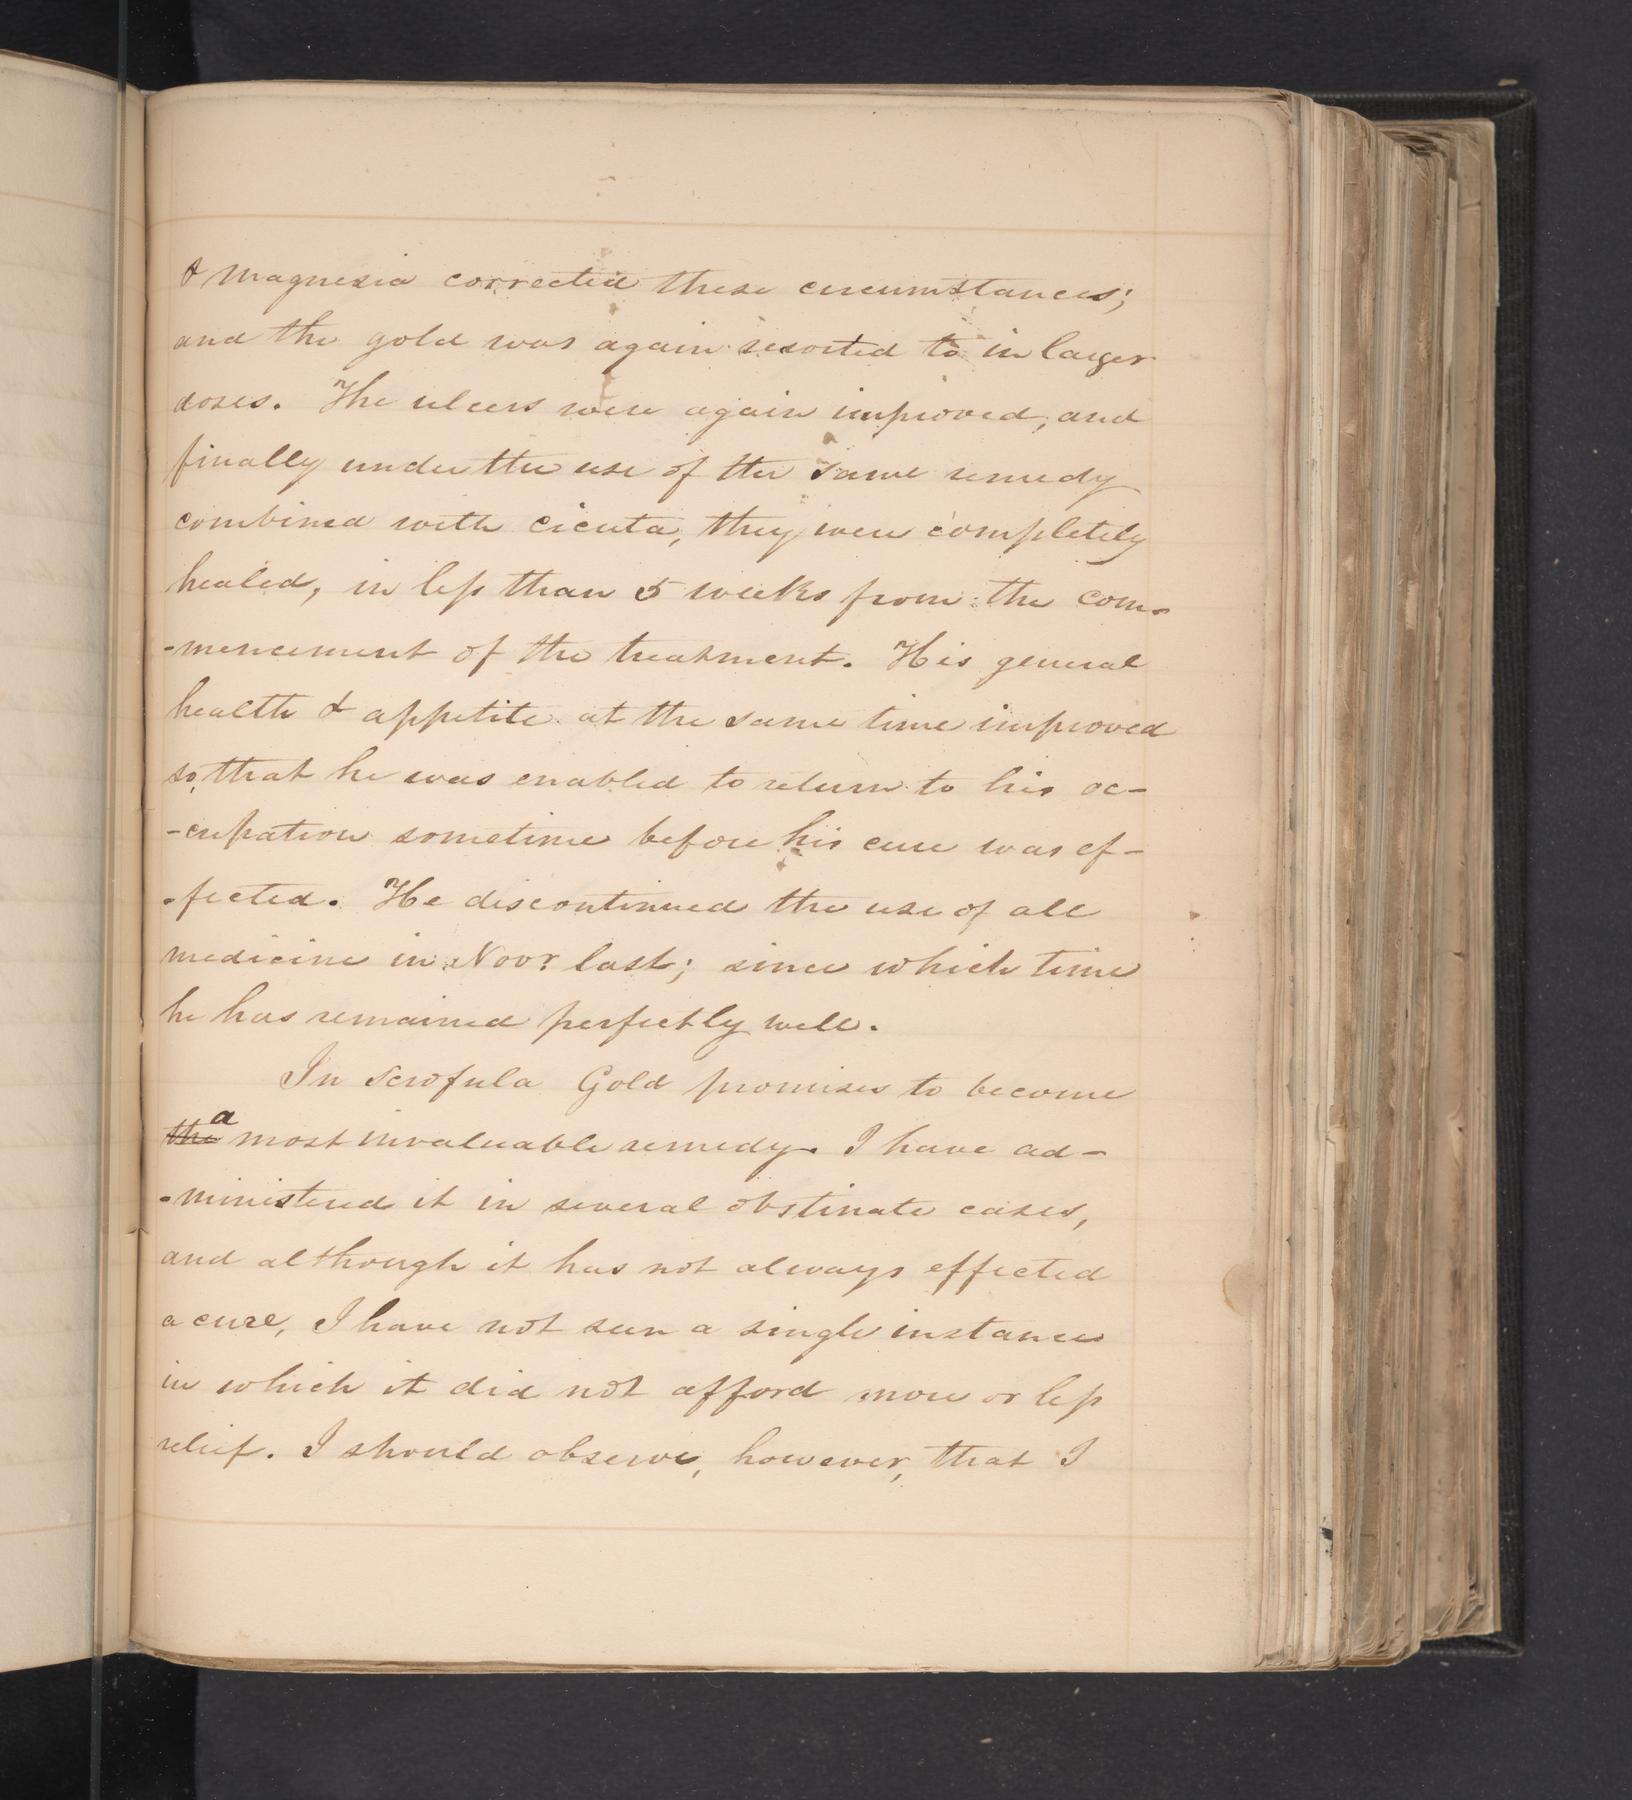 & magnesia corrected these circumstances;
and the gold was again resorted to in larger
doses. The ulcers were again improved, and
finally under the use of the same remedy
combined with cicuta, they were completely
healed, in less than 5 weeks from the com-
-mencement of the treatment. His general
health & appetite at the same time improved
so, that he was enabled to return to his oc-
-cupation sometime before his cure was ef-
-fected. He discontinued the use of all
medicine in Novr last; since which time
he has remained perfectly well.
In Scrofula Gold promises to become
the a most invaluable remedy. I have ad-
-ministered it in several obstinate cases,
and although it has not always effected
a cure, I have not seen a single instance
in which it did not afford more or less
relief. I should observe, however, that I